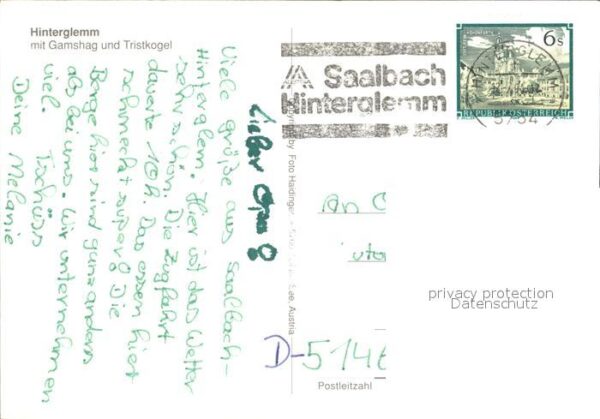 Hinterglemm
mit Gamshag und Tristkogel
Lieber Opa!
Viele grüße aus Saalbach-
Hinterglem. Hier ist das Wetter
sehr schön. Die Zugfahrt
dauerte 10h. Das essen hier
schmeckt super! Die
Berge hier sind ganz anders
als bei uns. Wir unternehmen
viel. Tschüss
Deine Melanie
by Foto Haidinger
See, Austria
Saalbach
Hinterglemm
6s
REPUBLIK ÖSTERREICH
5754
An
D-5146
Postleitzahl
privacy protection
Datenschutz